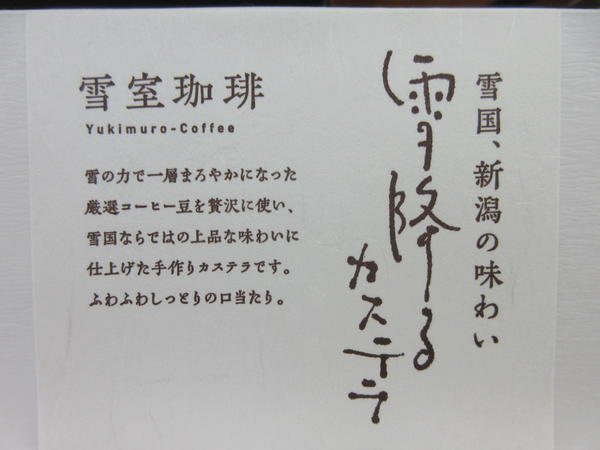 雪国、新潟の味わい
雪降る
カステラ
雪室珈琲
Yukimuro-Coffee
雪の力で一層まろやかになった
厳選コーヒー豆を贅沢に使い、
雪国ならではの上品な味わいに
仕上げた手作りカステラです。
ふわふわしっとりの口当たり。